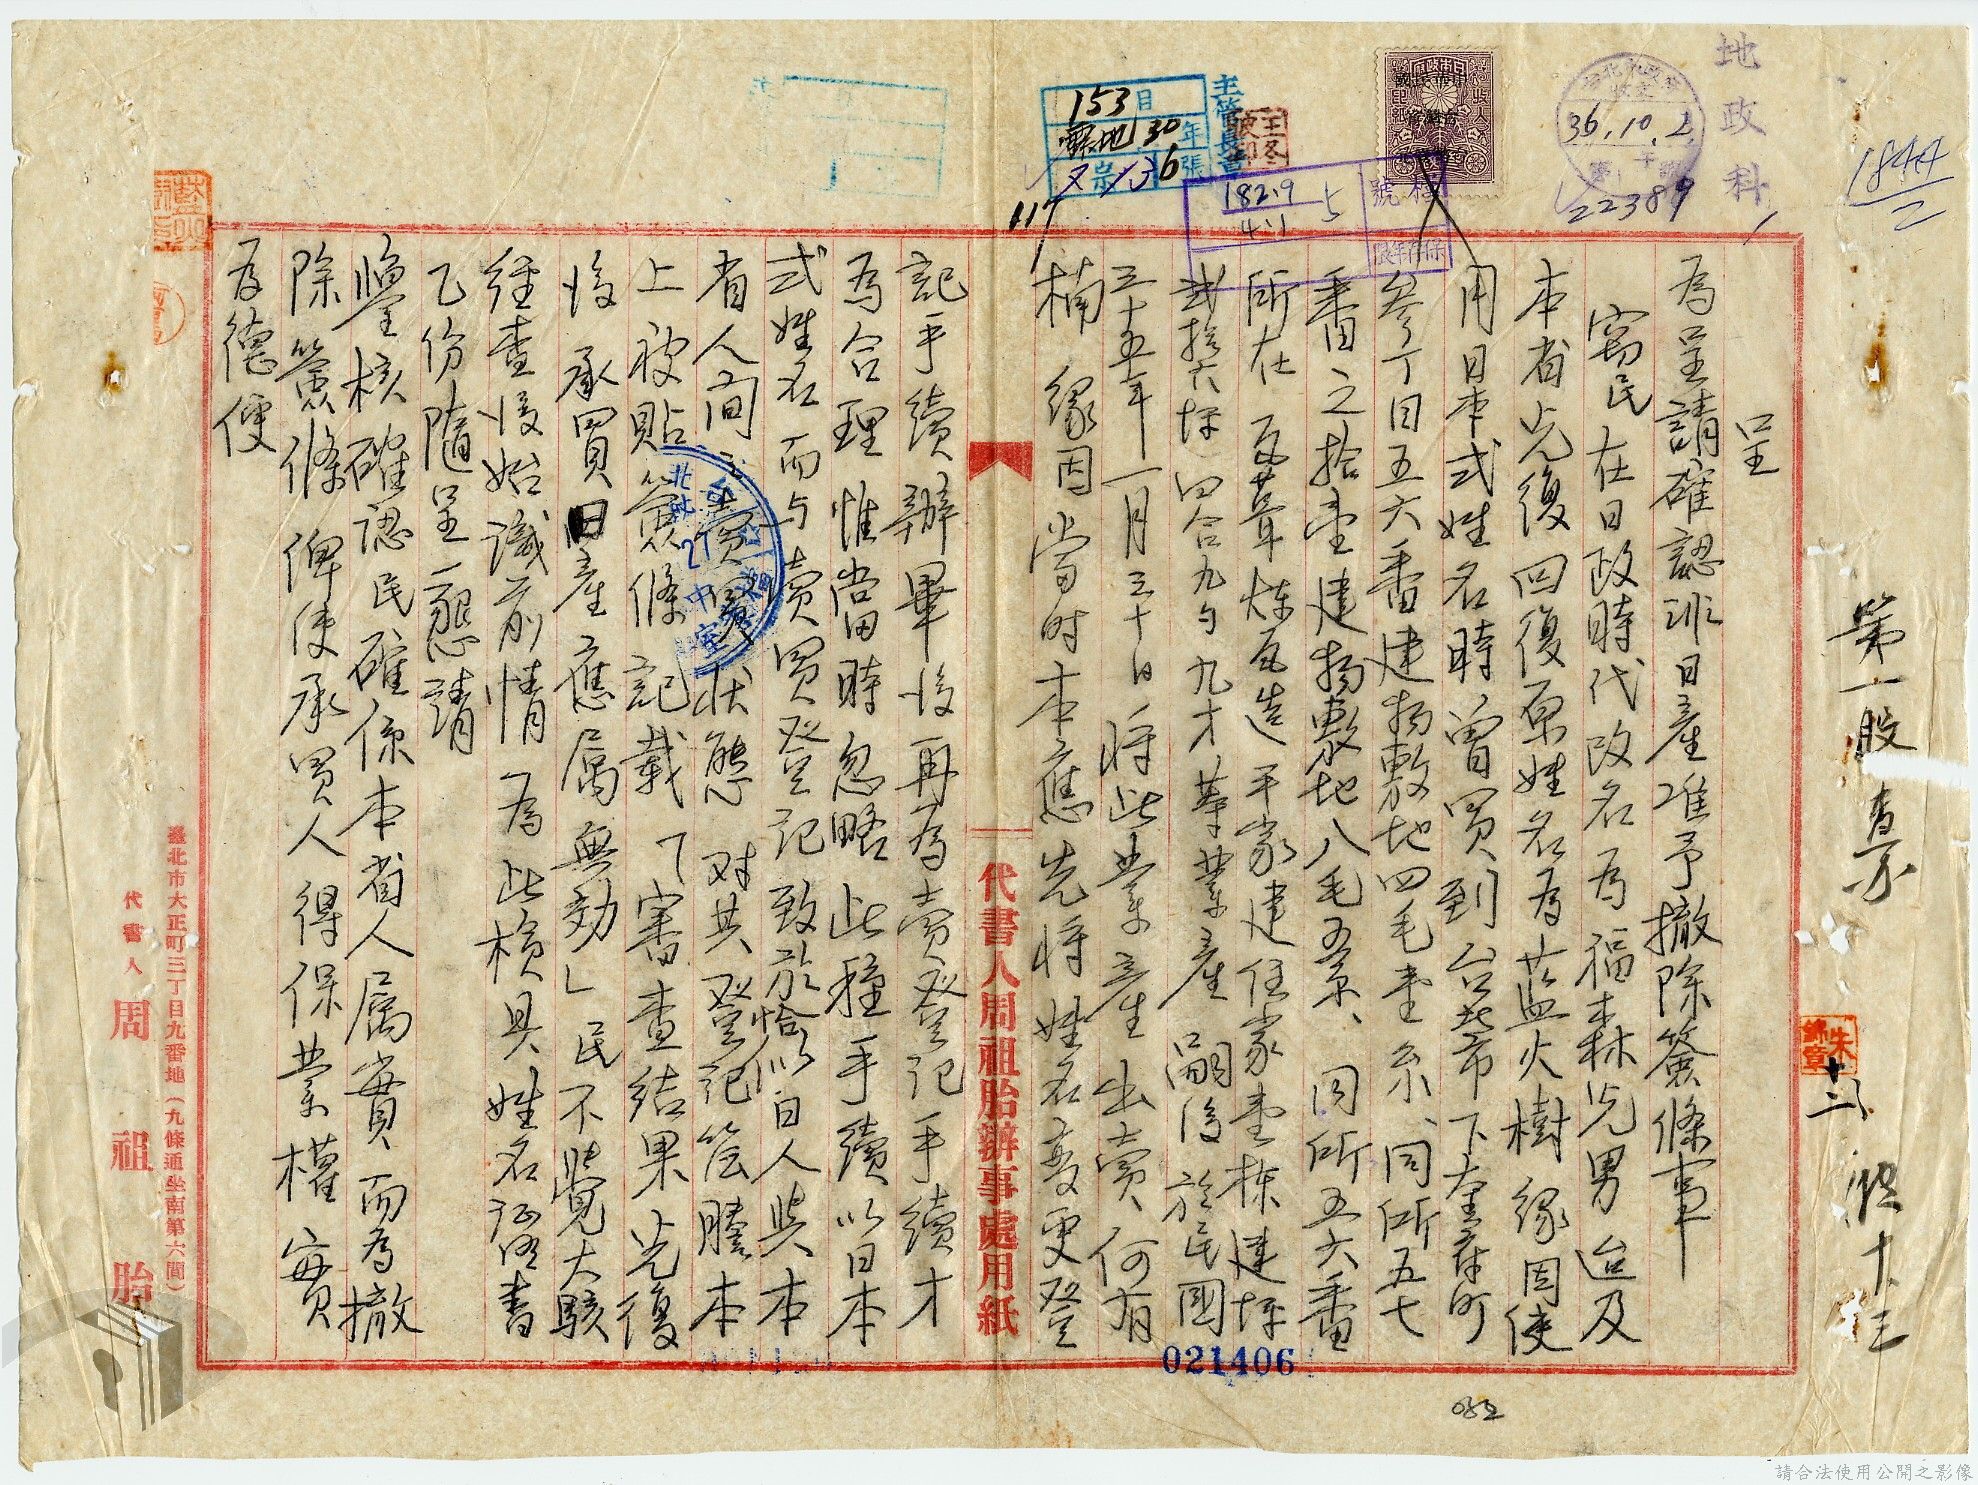 地政科
36.10.2
22389
1844/2
第一股
呈
為呈請確認非日產准予撤除簽條事
竊民在日政時代改名為福森光男迨及
本省光復回復原姓名為藍火樹緣因使
用日本式姓名時曾買到台北市下奎府町
參丁目五六番建物敷地四毛壹糸、同所五七
番之拾壹建物敷地八毛五糸、同所五六番
所在瓦葺煉瓦造平家建住家壹棟建坪
貳拾六坪四合九勺九才等業產嗣後於民國
三十五年一月三十日將此業產出賣何有
楠緣因當時本應先將姓名變更登
記手續辦畢後再為賣登記手續才
為合理惟當時忽略此種手續以日本
式姓名而与賣買登記致於恰以日人與本
省人間之賣買狀態对其登記簿謄本
上被貼簽條記載「審查結果光復
後承買日產應屬無効」民不覺大駭
經查後始識前情為此檢具姓名証明書
乙份隨呈懇請
鑒核確認民確係本省人屬實而為撤
除簽條俾使承買人得保業權實
為德便
代書人周祖胎辦事處用紙
臺北市大正町三丁目九番地(九條通坐南第六間)
代書人 周祖胎
主管長官
153目
30年
宗
36張
117
檔號
1829
4.1
5
保存年限
021406
請合法使用公開之影像